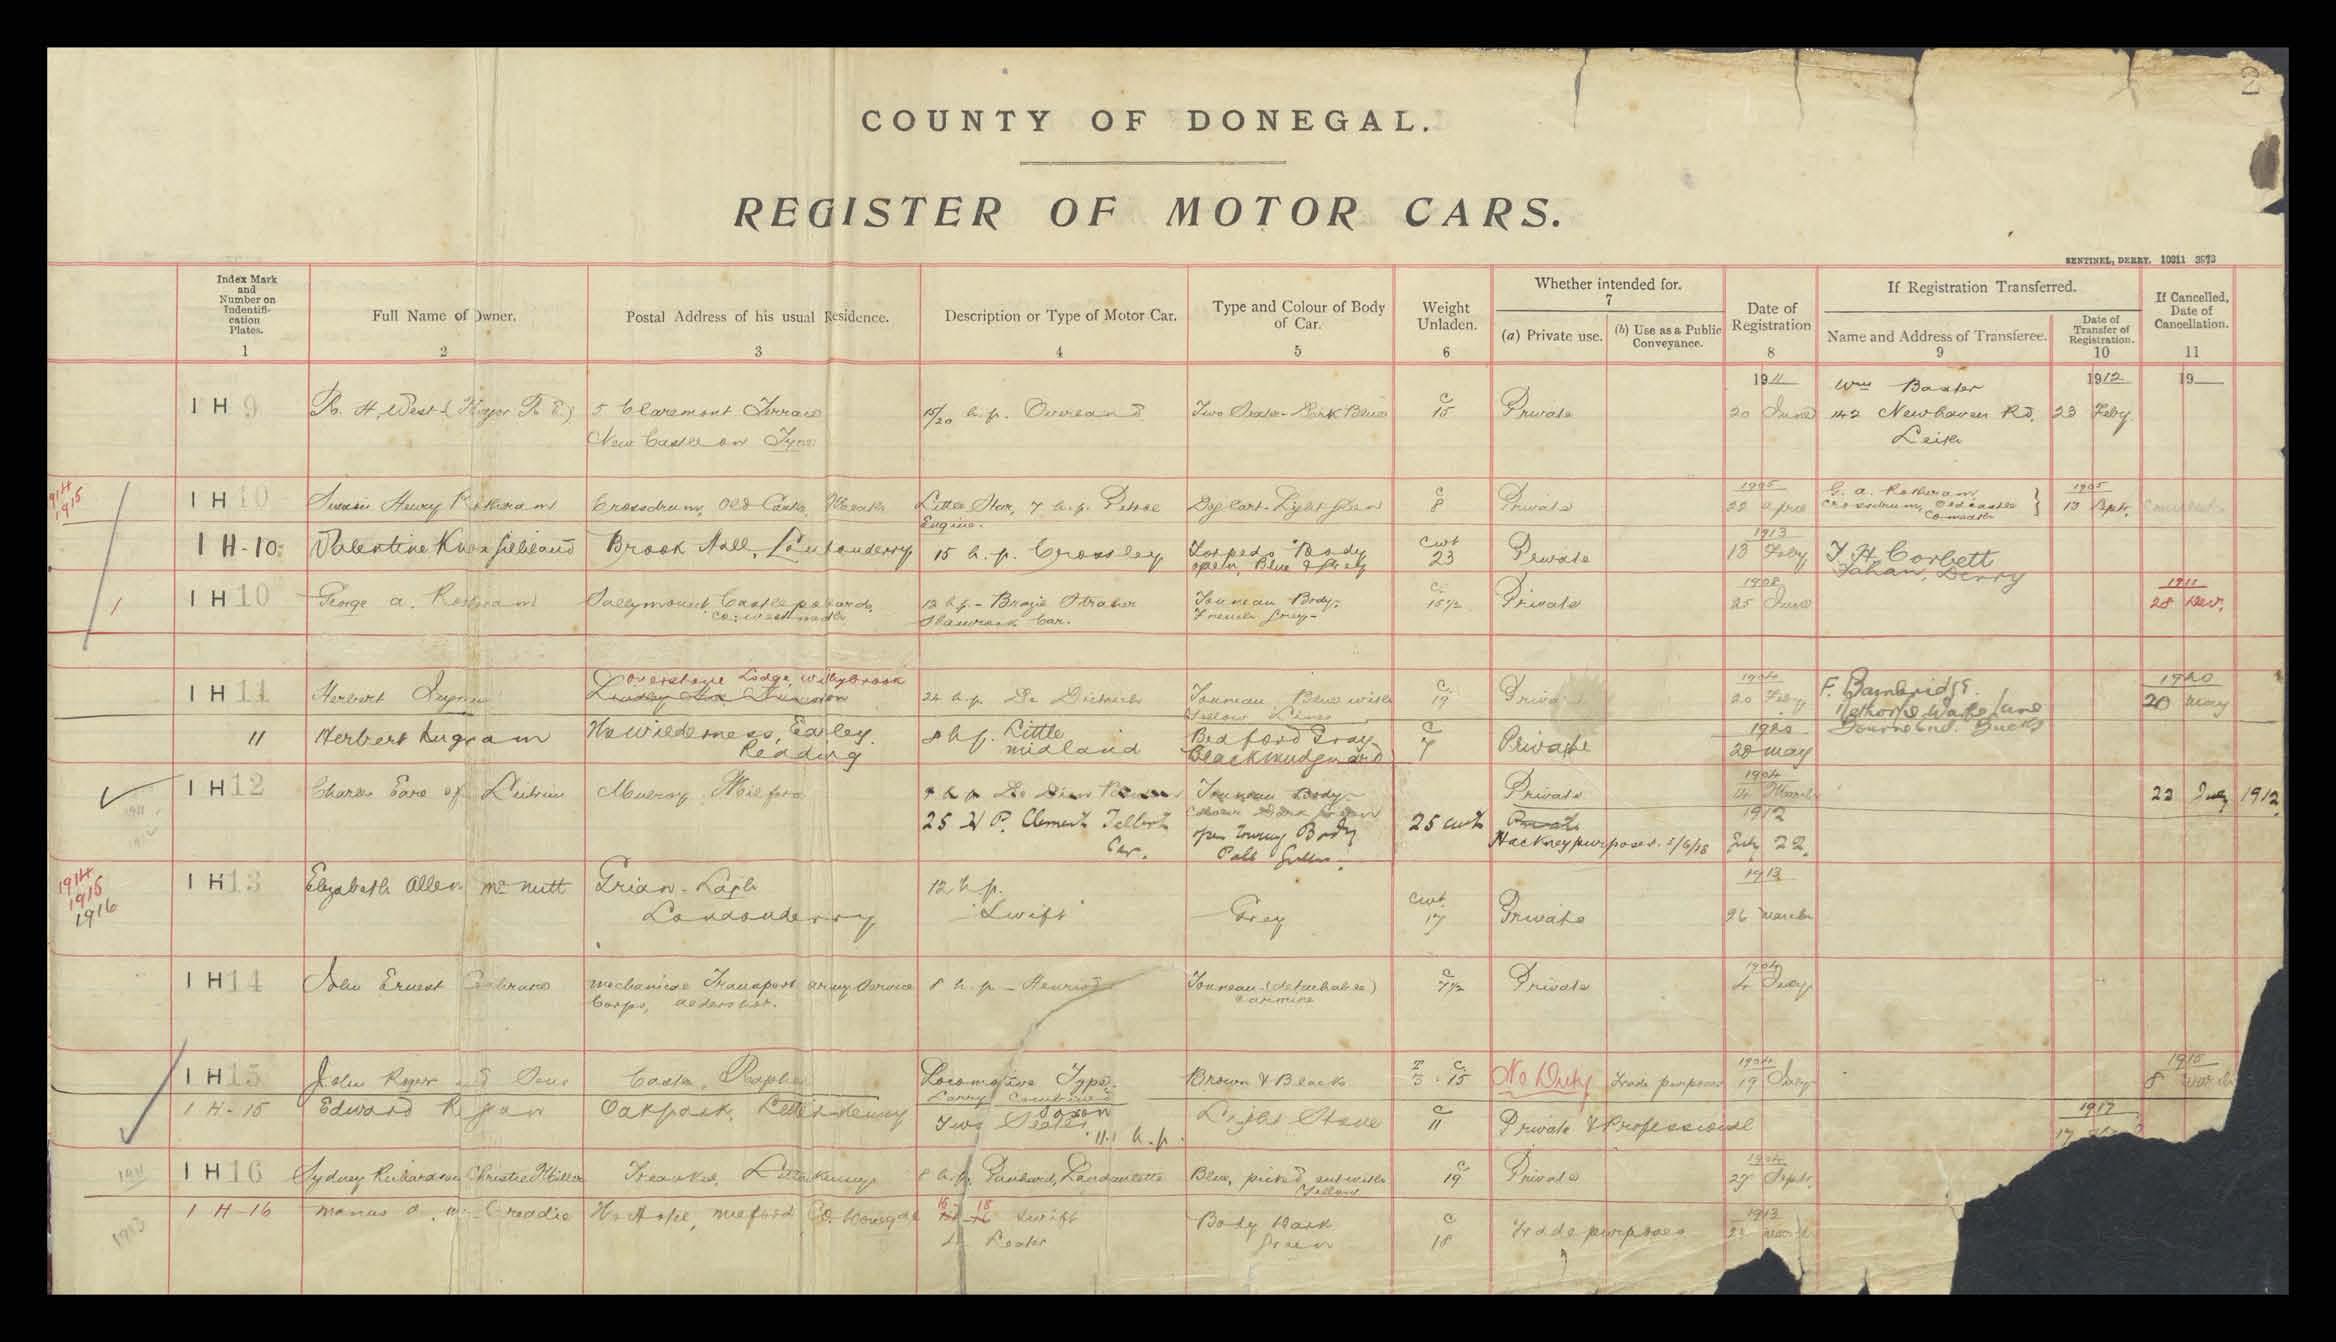 2
COUNTY OF DONEGAL.
REGISTER OF MOTOR CARS.
SENTINEL, DERRY. 10311 3573
Index Mark and Number on Indentifi-cation Plates.
1
Full Name of Owner.
2
Postal Address of his usual Residence.
3
Description or Type of Motor Car.
4
Type and Colour of Body of Car.
5
Weight Unladen.
6
Whether intended for.
7
(a) Private use.
(b) Use as a Public Conveyance.
Date of Registration
8
If Registration Transferred.
Name and Address of Transferee.
9
Date of Transfer of Registration.
10
If Cancelled, Date of Cancellation.
11
1911 1912 19
IH 9 R. H. West (Major R. E.) 5 Claremont Terrace 15/20 h.p. Overland Two Seater - Dark Blue c 15 Private 20 June Wm Baxter 23 Feby
New Castle on Tyne 142 Newhaven Rd. Leith
1914
1915
IH 10 Henry Rotheram Crossdrum, Old Castle, Meath Little Star, 7 h.p. Petrol Engine. Dog Cart - Light Green c 8 Private 1905 22 April G. A. Rotheram, Crossdrum, Oldcastle Co. Meath } 1905 13 Sept. Cancelled
IH-10 Valentine Knox Gilliland Brook Hall, Londonderry 15 h.p. Crossley Torpedo Body open, Blue & Grey cwt 23 Private 1913 13 Feby J. H. Corbett Fahan, Derry
1 IH 10 George A. Rotheram Sallymount, Castlepollard, Co. Westmeath 12 h.p. - Brazil Straker Shamrock Car. Tonneau Body - French Grey - c. 15 1/2 Private 1908 25 June 1911 28 Nov.
IH 11 Herbert Ingram Lodge, Willybrook 24 h.p. De Dietrich Tonneau Blue with Yellow Lines c. 19 Private 1904 20 Feby F. Bambridge. Bourne End. Bucks 1920 20 May
11 Herbert Ingram The Wilderness, Earley. Reading 8 h.p. Little Midland Bedford Gray Black mudguard c 7 Private 1920 20 May
1911
1912
IH 12 Charles Earl of Leitrim Mulroy, Milford Tonneau Body - Colour Dark Green Private 1904 14 March 22 July 1912
25 H P. Clement Talbot Car. open Touring Body Pale Green. 25 cwts Private 1912 July 22.
Hackney purposes. 5/6/18
1914
1915
1916
IH 13 Elizabeth Allen McNutt Grian-Lagh Londonderry 12 h.p. "Swift" Grey cwt. 17 Private 1913 26 March
IH 14 John Ernest Cochrane Mechanical Transport Army Service Corps, Aldershot. 8 h.p - Henriod Tonneau (detachable) Carmine c 7 1/2 Private 1904 4 July
IH 15 John Roger and Sons Castle, Raphoe Locomotive Type. Lorry Combined Brown & Black T 3 . c. 15 No Duty Trade purposes 1904 19 July 1915 8 March
IH-15 Edward Ryan Oakpark, Letterkenny Two Seater Saxon 11.1 h.p. Light Stone c 11 Private & Professional 1917 17
1911 IH 16 Sydney Richardson Christie Miller Letterkenny 8 h.p. Panhard, Landaulette Blue, picked out with Yellow c. 19 Private 1904 27 Sept.
1913 IH-16 Manus A. McCreadie The Hope, Milford Co. Donegal 16-18 Swift Seater Body Dark Green c 18 Trade purposes 1913 March